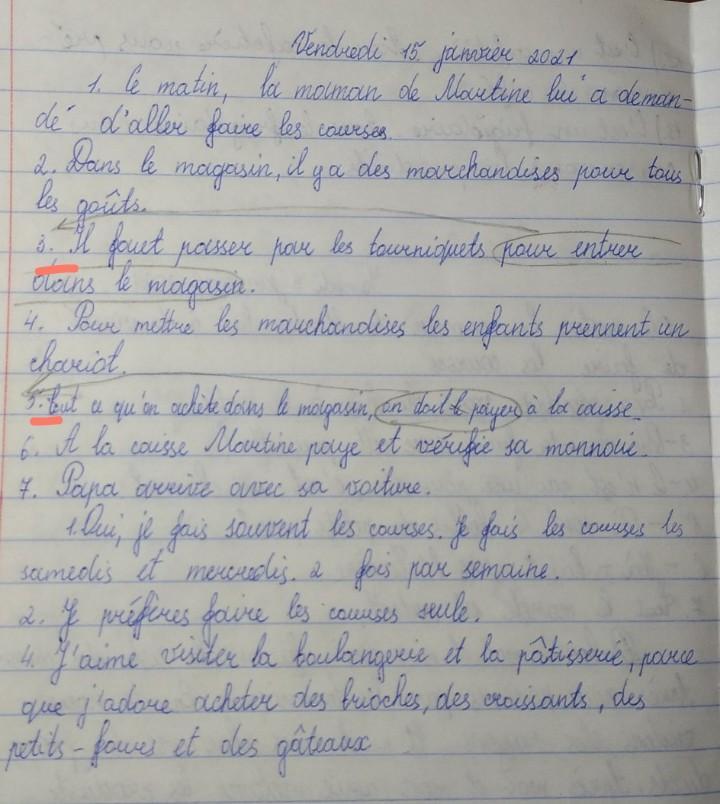 Vendredi 15 janvier 2021
1. Le matin, la maman de Martine lui a deman-
dé d'aller faire les courses.
2. Dans le magasin, il y a des marchandises pour tous
les goûts.
3. Il fouet passer par les tourniquets pour entrer
dans le magasin.
4. Pour mettre les marchandises les enfants prennent un
chariot.
5. tout ce qu'on achète dans le magasin, on doit le payer à la caisse.
6. A la caisse Martine paye et vérifie sa monnaie.
7. Papa arrive avec sa voiture.
1. Oui, je fais souvent les courses. Je fais les courses les
samedis et mercredis. 2 fois par semaine.
2. Je préfères faire les courses seule.
4. J'aime visiter la boulangerie et la pâtisserie, parce
que j'adore acheter des brioches, des croissants, des
petits-foures et des gâteaux